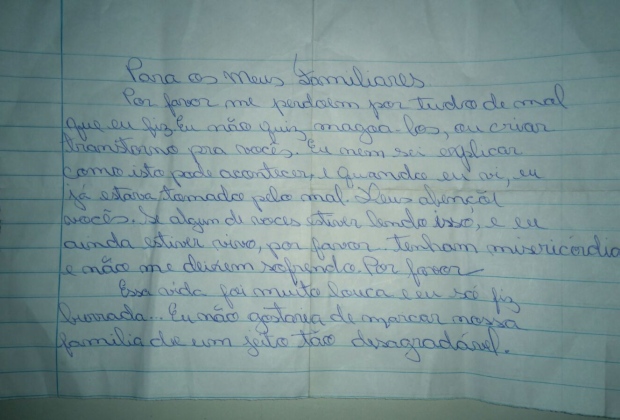 Para os meus familiares
Por favor me perdoem por tudo de mal
que eu fiz. Eu não quiz magoa-los, ou criar
transtorno pra vocês. Eu nem sei explicar
como isto pode acontecer, e quando eu vi, eu
já estava tomado pelo mal. Deus abençoi
vocês. Se algum de voces estiver lendo isso, e eu
ainda estiver vivo, por favor tenham misericórdia
e não me deixem sofrendo. Por favor
Essa vida foi muito louca e eu só fiz
burrada... Eu não gostaria de marcar nossa
familia de um jeito tão desagradável.